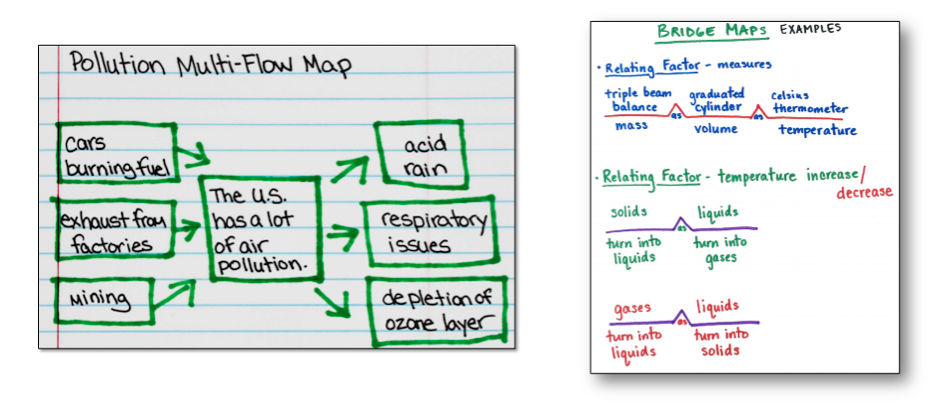 Pollution Multi-Flow Map
cars
burning fuel
exhaust from
factories
mining
The U.S.
has a lot
of air
pollution.
acid
rain
respiratory
issues
depletion of
ozone layer
BRIDGE MAPS EXAMPLES
• Relating Factor - measures
triple beam
balance
mass
as
graduated
cylinder
volume
as
celsius
thermometer
temperature
• Relating Factor - temperature increase/
decrease
solids
turn into
liquids
as
liquids
turn into
gases
gases
turn into
liquids
as
liquids
turn into
solids